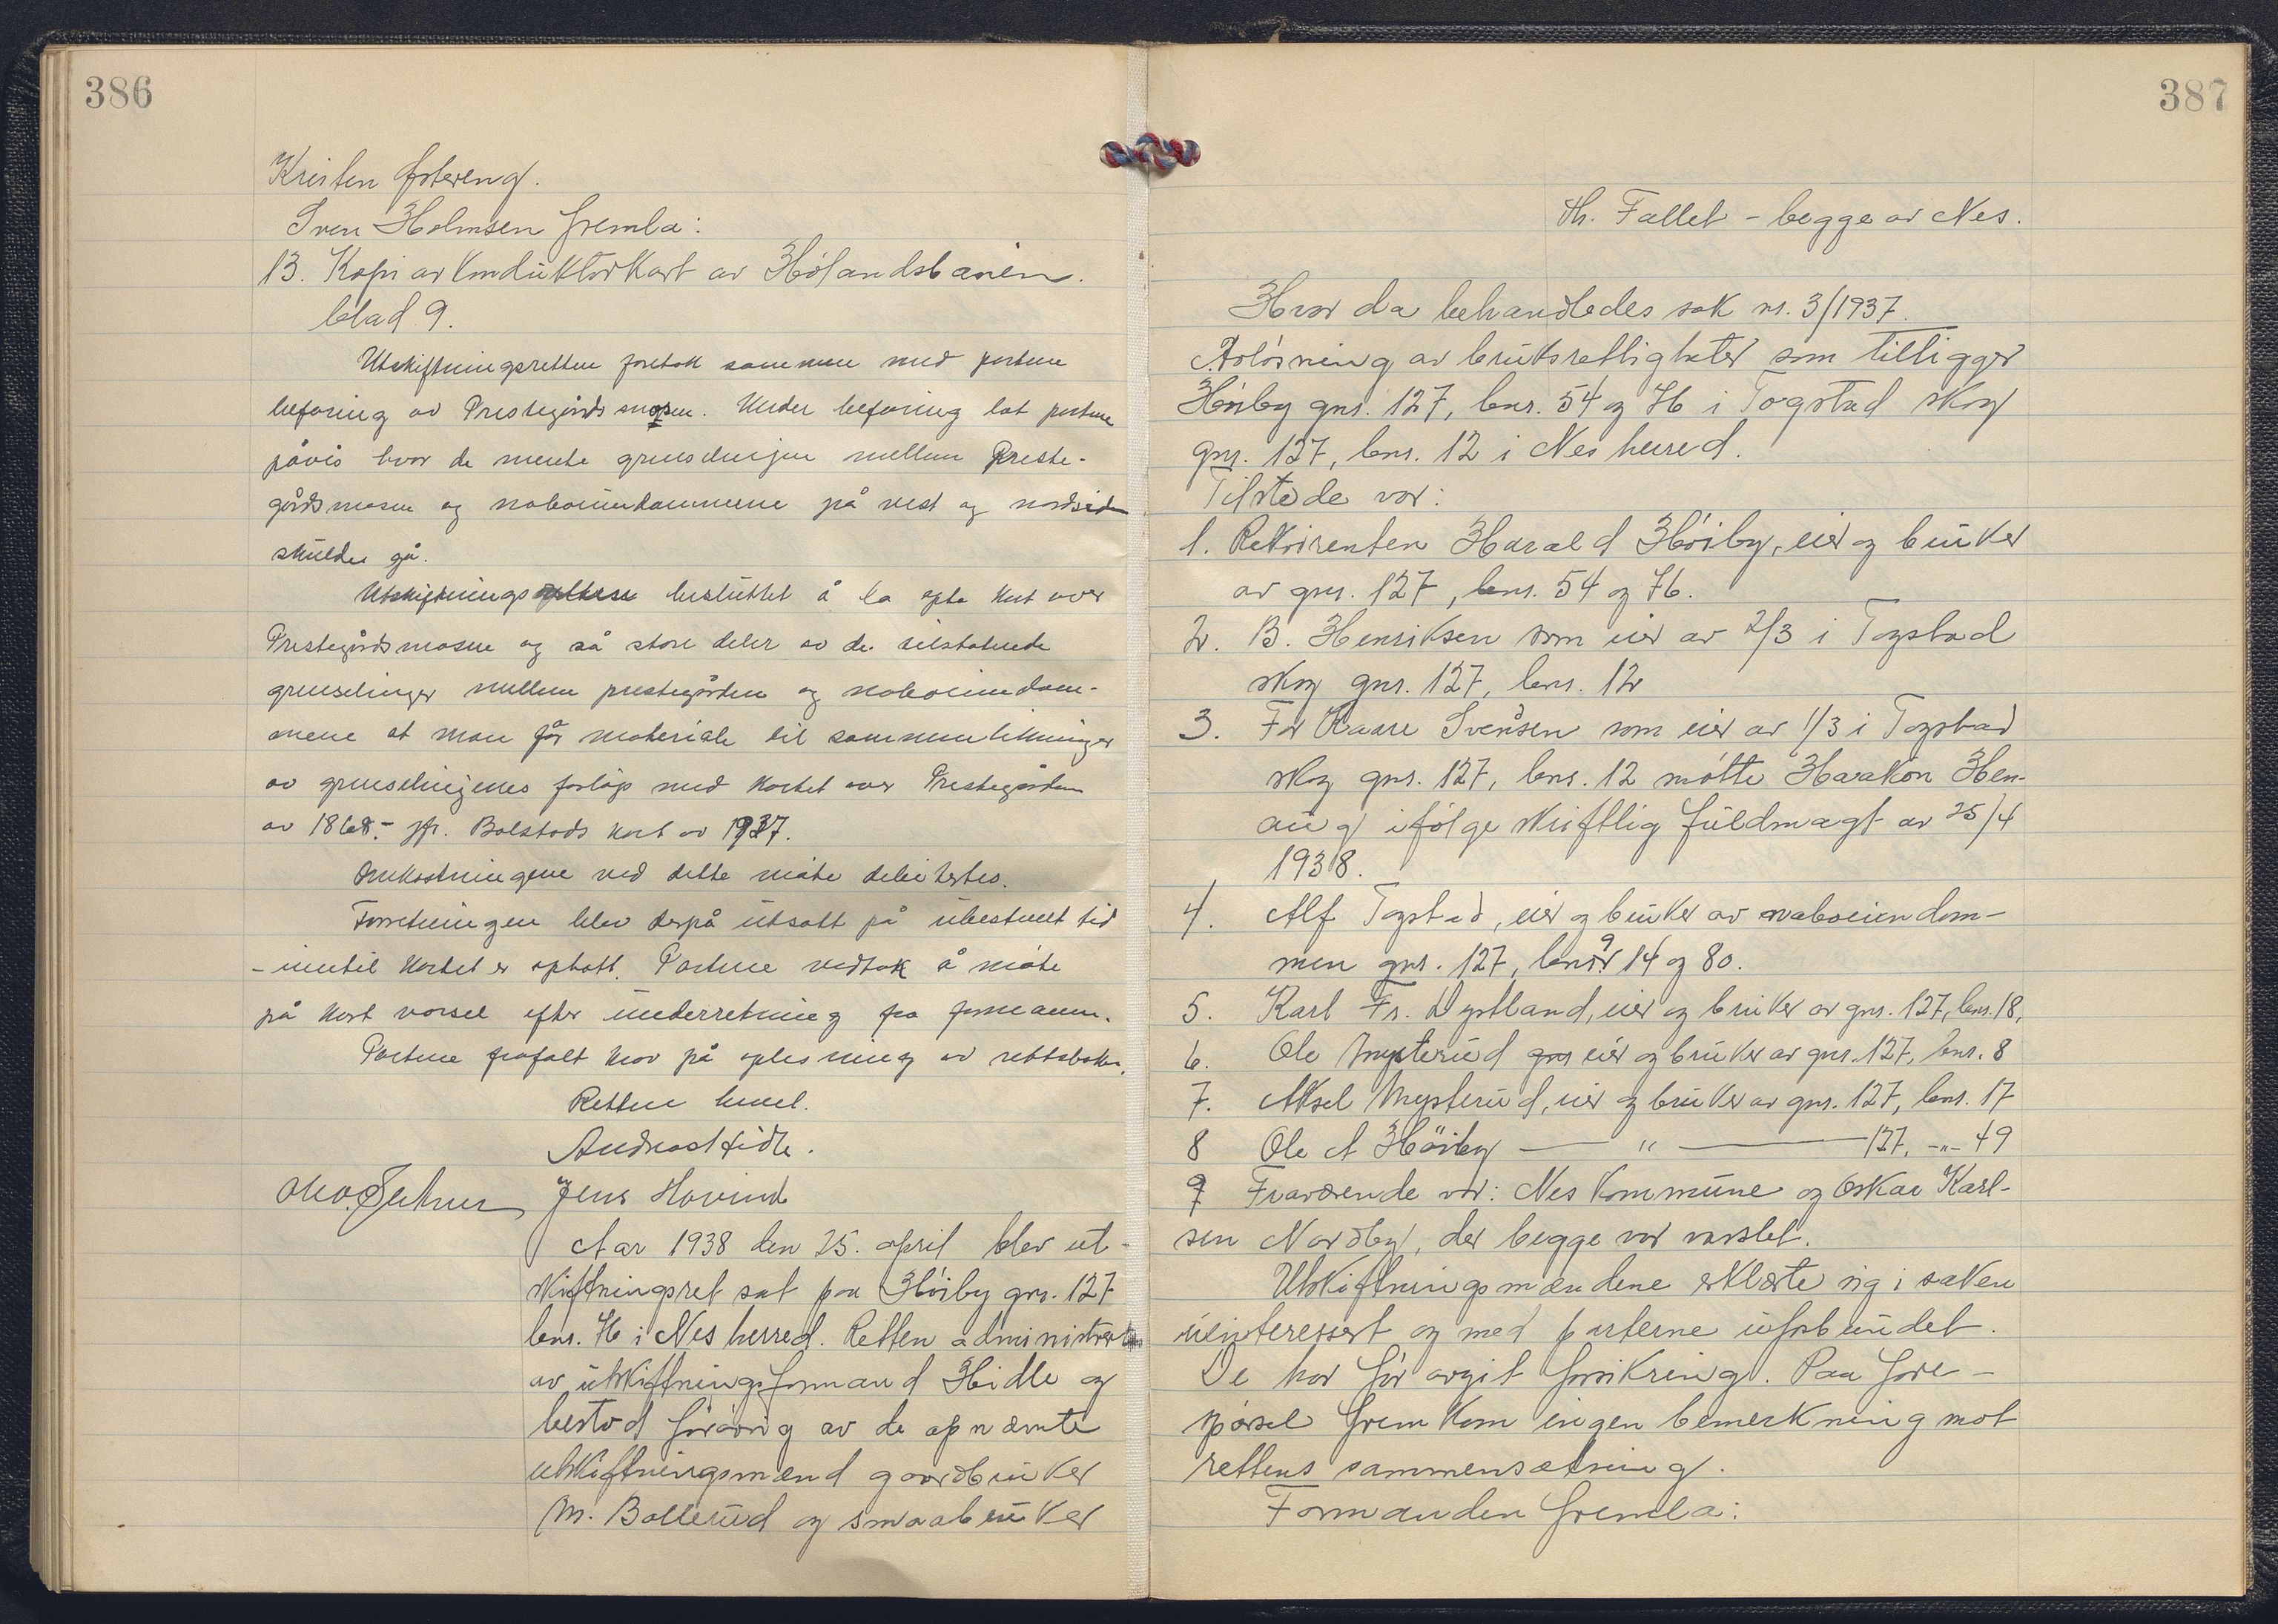 386
Kristen Østereng.
Sven Holmsen fremla:
13. Kopi av konduktørkart av Hølandsbanen.
blad 9.
Utskiftningsretten foretok sammen med partene
befaring av Prestegårdsmosen. Under befaring lot partene
påvis hvor de mente grenselinjen mellem Preste-
gårdsmosen og naboeiendommene på vest og nordsiden
skulde gå.
Utskiftningsretten besluttet å la opta kart over
Prestegårdsmosen og så store deler av de tilstøtende
grenselinjer mellem prestegården og naboeiendom-
mene at man får materiale til sammenlikninger
av grenselinjenes forløp med kartet over Prestegården
av 1868.- jfr. Bolstads kart av 1937.
Omkostningene ved dette møte debitertes.
Forretningen blev derpå utsatt på ubestemt tid
- inntil kartet er optatt. Partene vedtok å møte
på kort varsel efter underretning fra formannen.
Partene frafalt krav på oplesning av rettsboken.
Retten hevet.
Andreas Hidle.
Jens Hovind
Aar 1938 den 25. april blev ut-
skiftningsret sat paa Høiby gnr. 127
bnr. 76 i Nes herred. Retten administrert
av utskiftningsformand Hidle og
bestod forøvrig av de opnævnte
utskiftningsmænd gaardbruker
M. Bollerud og smaabruker
387
Th. Fallet - begge av Nes.
Hvor da behandledes sak nr. 3/1937.
Avløsning av bruksrettigheter som tilligger
Høiby gnr. 127, bnr. 54 og 76 i Togstad skog
gnr. 127, bnr. 12 i Nes herred.
Tilstede var:
1. Rekvirenten Harald Høiby, eier og bruker
av gnr. 127, bnr. 54 og 76.
2. B. Henriksen som eier av 2/3 i Togstad
skog gnr. 127, bnr. 12
3. For Kaare Svendsen som eier av 1/3 i Togstad
skog gnr. 127, bnr. 12 møtte Haakon Hen-
aug ifølge skriftlig fuldmagt av 25/4
1938.
4. Alf Togstad, eier og bruker av naboeiendom-
men gnr. 127, bnr. 9, 14 og 80.
5. Karl Fr. Dystland, eier og bruker av gnr. 127, bnr. 18,
6. Ole Mysterud gnr eier og bruker av gnr. 127, bnr. 8
7. Aksel Mysterud, eier og bruker av gnr. 127, bnr. 17
8 Ole A Höiby — " — 127, -"- 49
9 Fraværende var: Nes kommune og Oskar Karl-
sen Nordby, der begge var varslet.
Utskiftningsmændene erklærte sig i saken
uinteressert og med parterne uforbundet.
De har før avgit forsikring. Paa fore-
spørsel fremkom ingen bemerkning mot
rettens sammensætning.
Formanden fremla: